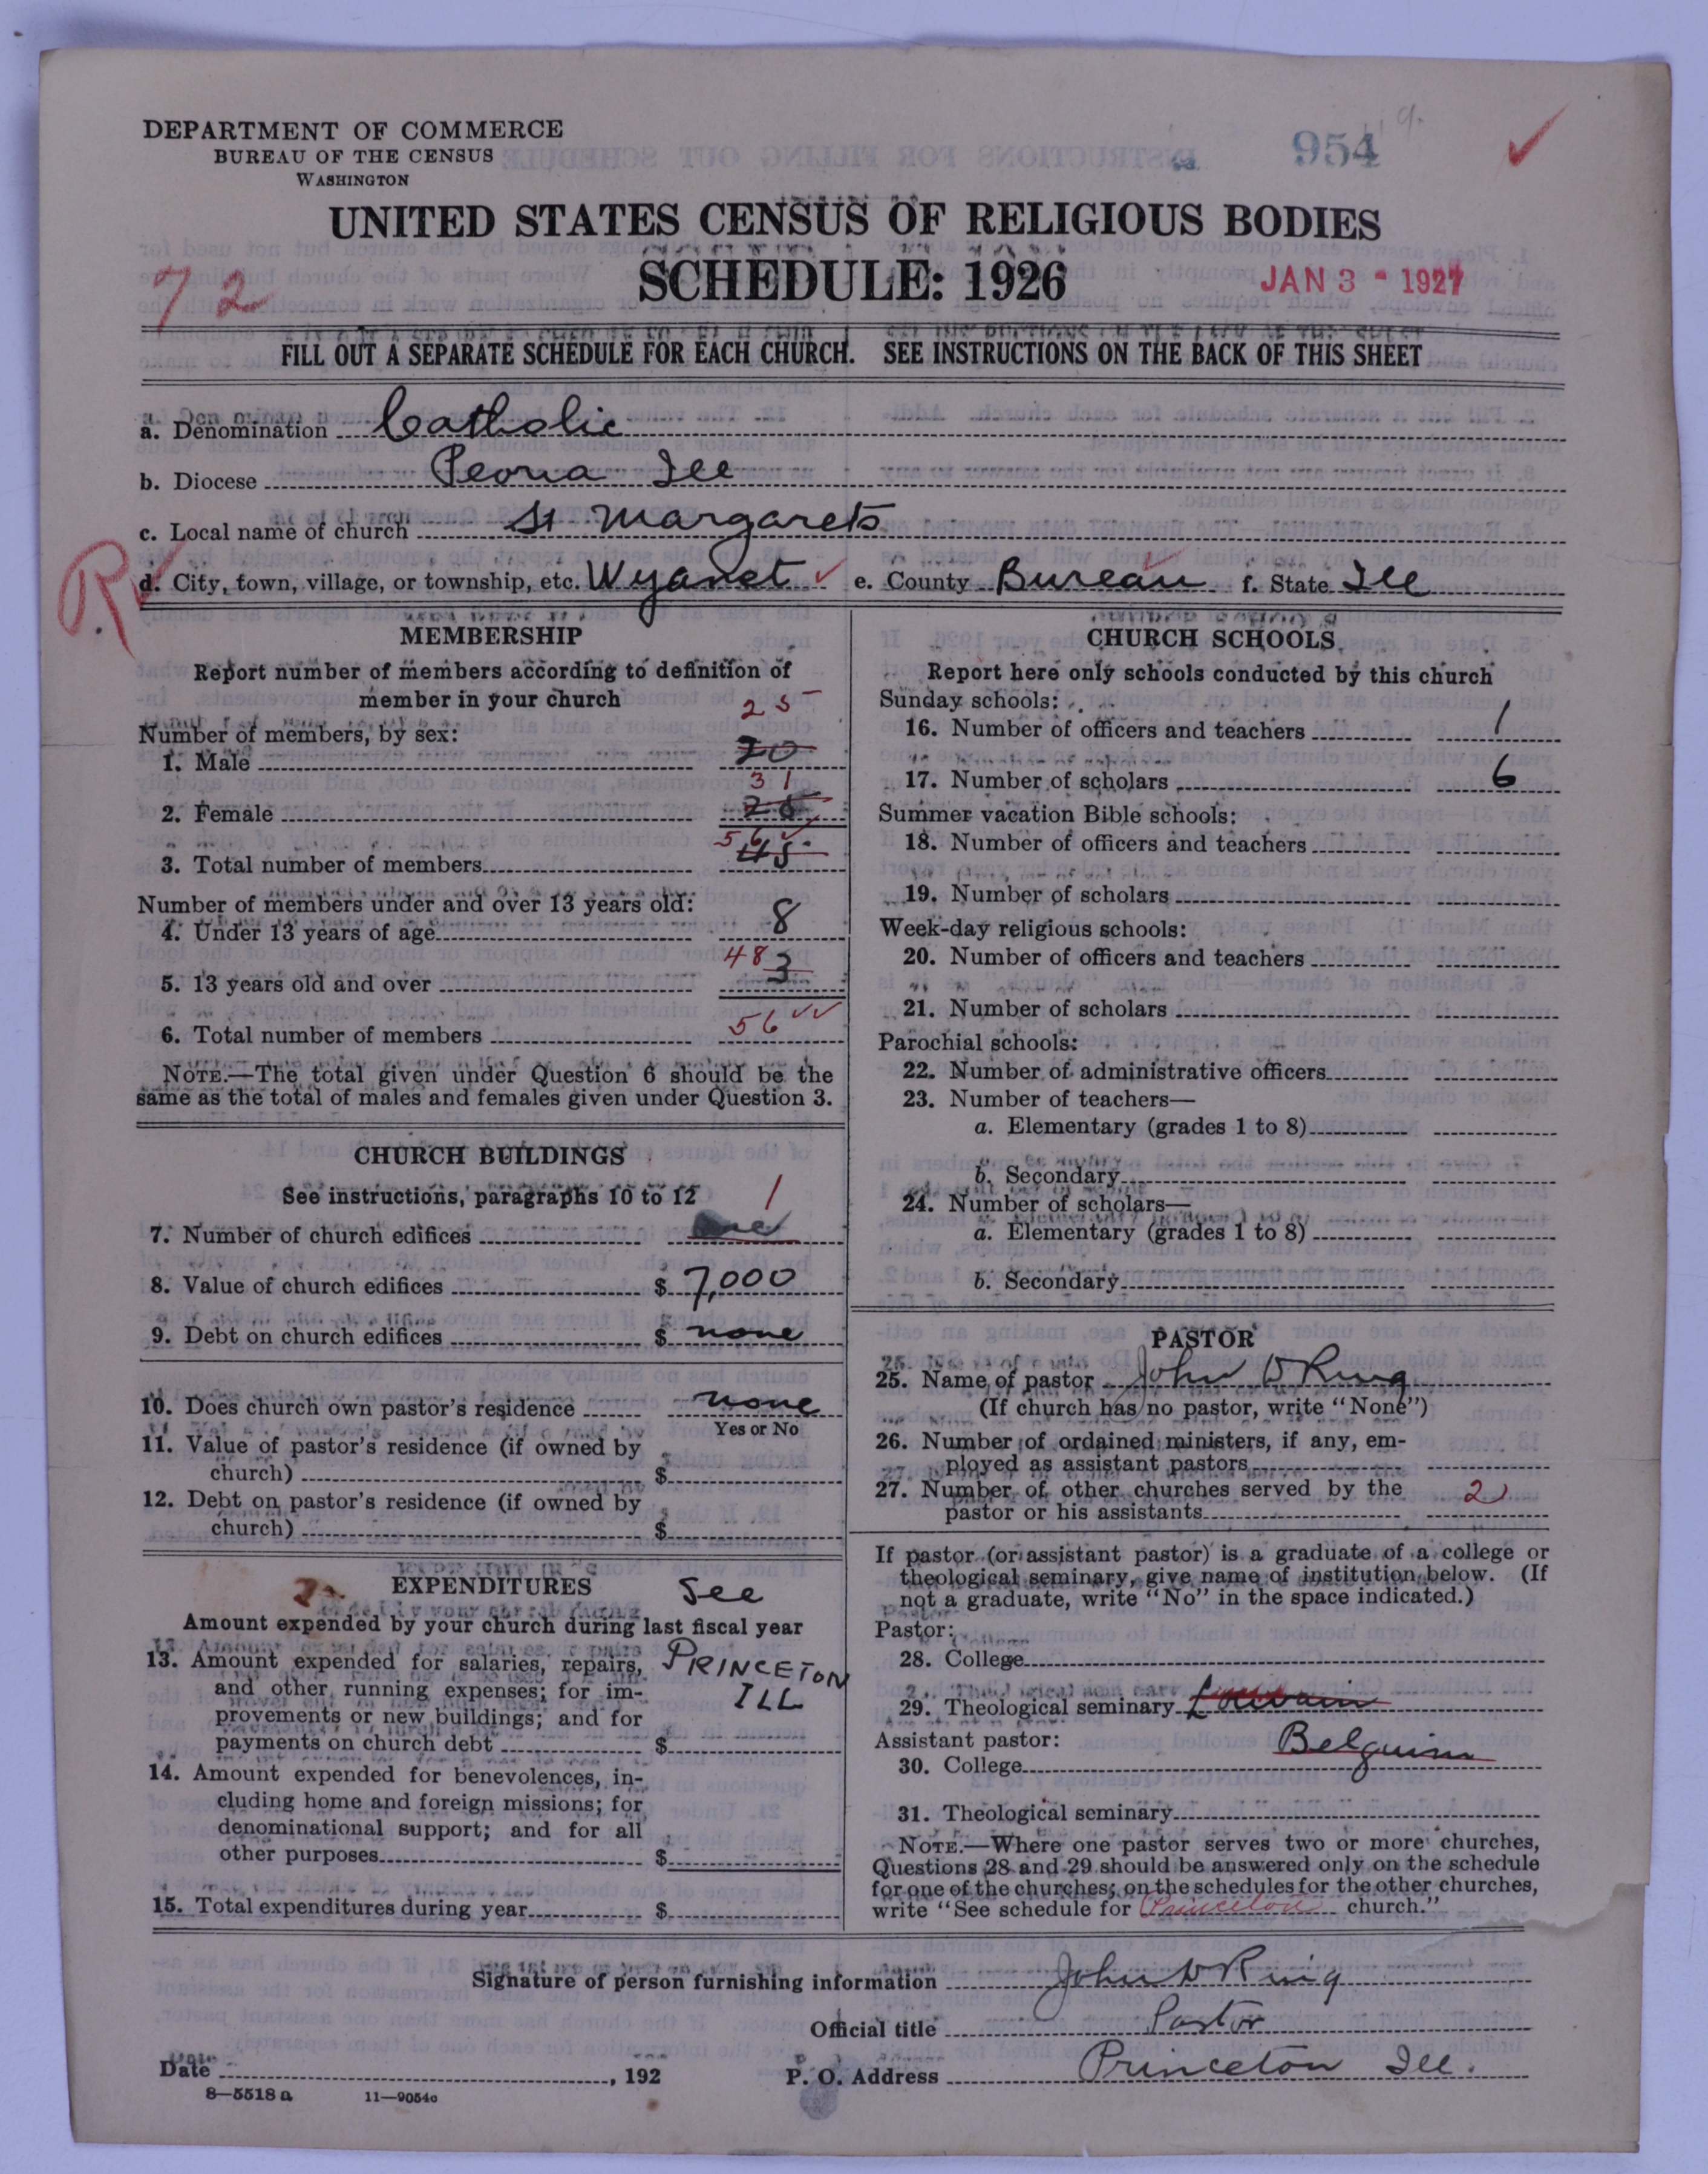 DEPARTMENT OF COMMERCE
BUREAU OF THE CENSUS
WASHINGTON
954
UNITED STATES CENSUS OF RELIGIOUS BODIES
SCHEDULE: 1926
72
JAN 3 - 1927
FILL OUT A SEPARATE SCHEDULE FOR EACH CHURCH. SEE INSTRUCTIONS ON THE BACK OF THIS SHEET
a. Denomination Catholic
b. Diocese Peoria Ill
c. Local name of church St Margarets
R
d. City, town, village, or township, etc. Wyanet e. County Bureau f. State Ill
MEMBERSHIP
Report number of members according to definition of
member in your church
25
Number of members, by sex:
1. Male 20
31
2. Female
56
3. Total number of members 45
Number of members under and over 13 years old:
4. Under 13 years of age 8
5. 13 years old and over 48 3
6. Total number of members 56
NOTE.—The total given under Question 6 should be the
same as the total of males and females given under Question 3.
CHURCH BUILDINGS
See instructions, paragraphs 10 to 12
1
7. Number of church edifices One
8. Value of church edifices $ 7,000
9. Debt on church edifices $ none
10. Does church own pastor's residence none
Yes or No
11. Value of pastor's residence (if owned by
church) $
12. Debt on pastor's residence (if owned by
church) $
EXPENDITURES See
Amount expended by your church during last fiscal year
13. Amount expended for salaries, repairs, PRINCETON
and other running expenses; for im- ILL
provements or new buildings; and for
payments on church debt $
14. Amount expended for benevolences, in-
cluding home and foreign missions; for
denominational support; and for all
other purposes $
15. Total expenditures during year $
CHURCH SCHOOLS
Report here only schools conducted by this church
Sunday schools:
16. Number of officers and teachers 1
17. Number of scholars 6
Summer vacation Bible schools:
18. Number of officers and teachers
19. Number of scholars
Week-day religious schools:
20. Number of officers and teachers
21. Number of scholars
Parochial schools:
22. Number of administrative officers
23. Number of teachers—
a. Elementary (grades 1 to 8)
b. Secondary
24. Number of scholars—
a. Elementary (grades 1 to 8)
b. Secondary
PASTOR
25. Name of pastor John W Ring
(If church has no pastor, write "None")
26. Number of ordained ministers, if any, em-
ployed as assistant pastors
27. Number of other churches served by the 2
pastor or his assistants
If pastor (or assistant pastor) is a graduate of a college or
theological seminary, give name of institution below. (If
not a graduate, write "No" in the space indicated.)
Pastor:
28. College
29. Theological seminary Louvain
Assistant pastor: Belguim
30. College
31. Theological seminary
NOTE.—Where one pastor serves two or more churches,
Questions 28 and 29 should be answered only on the schedule
for one of the churches; on the schedules for the other churches,
write "See schedule for Princeton church."
Signature of person furnishing information John W Ring
Official title Pastor
Date , 192
P. O. Address Princeton Ill.
8—5518a 11—9054c